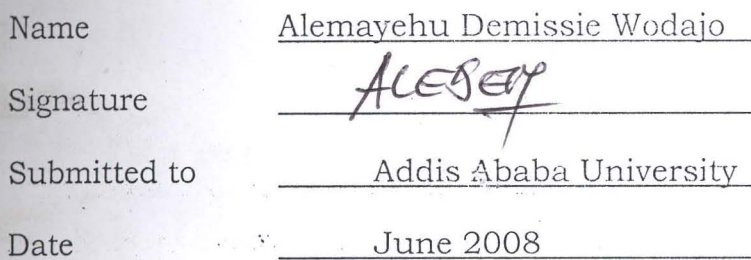 Name Alemayehu Demissie Wodajo
Signature
Submitted to Addis Ababa University
Date June 2008